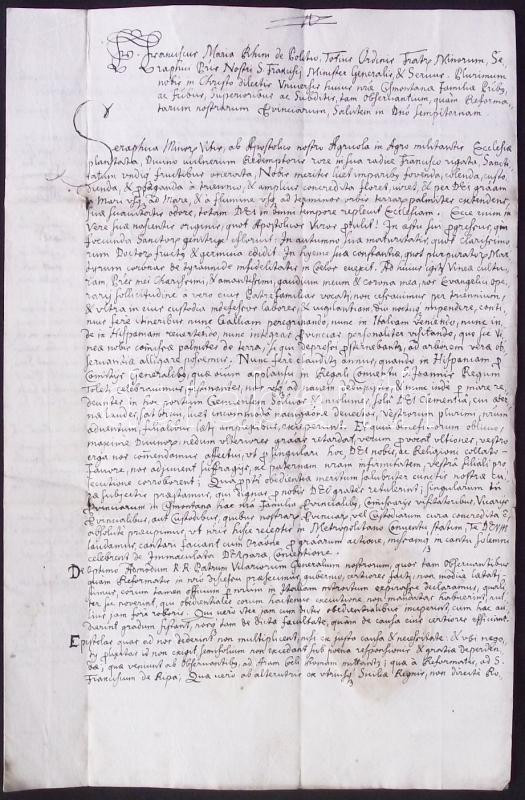 Fr. Franciscus Maria Rhini de Politio, Totius Ordinis Fratrum Minorum, Se-
raphici Pris Nostri S. Francisci Minister Generalis, & Servus. Plurimum
nobis in Christo dilectis Universis huius nrae Cismontanae Familiae Pribus,
ac Fribus, Superioribus ac Subditis, tam observantium, quam Reforma-
tarum nostrarum Provinciarum, Salutem in Dno sempiternam.
Seraphica Minor Vitis, ab Apostolico nostro Agricola in Agro militantis Ecclesiae
plantata, Divino vulnerum Redemptoris rore in sua radice Francisco rigata, Sancti-
tatum undiq fructibus onerata, Nobis meritis licet imparibs fovenda, colenda, custo-
dienda, & propaganda à triennio, & amplius concredita floret, viret, & per DEI gratiam
à Mari usq ad Mare, & à flumine usq ad terminos orbis terrar palmites extendens,
sua suavitatis odore, totam DEI in omni tempore replevit Ecclesiam. Ecce enim in
Vere sua nascentis originis, quot Apostolicos Viros protulit! In aestu sui progressus, qm
foecunda Sanctor genitrix effloruit! In autumno sua maturitatis, quot clarissimo-
rum Doctor fructs & germina edidit! In hyeme sua constantiae, quot purpurator Mar-
tyrum coronas de tyrannide infidelitatis in Coelos evexit. Ad huius igitr Vinea cultu-
ram, Pres mei charissimi, & amantissimi, gaudium meum & corona mea, nos Evangelici ope-
rarij sollicitudine à vero eius Patrefamilias vocati, non cessavimus per triennium,
& ultra in eius custodia indefessos labores, & vigilantiam diu noctuq impendere, conti-
nuis ferè itineribus nunc Galliam peregrinando, nunc in Italiam veniendo, nunc in-
de in Hispaniam revertendo, nunc integras Provincias personaliter visitando, quo sic Vi-
nea nobis comissa palmites de terra, si qui depressi prosternebantr, ad arborem vera ob-
servantia alligare possemus. Nunc ferè claudits annus, quando in Hispaniam p
Comitijs Generalibs, qua cum applausu in Regali Conventu S. Joannis Regum
Toleti celebravimus,
deuntes, in hoc portum Genuensem solliciti & incolumes, sola DEI Clementia, cui aeter-
na laudes, sat citius, licet incommoda navigatione devectos, Vestrorum plurimi, nrum
adventum, filialibus laeti amplexibs, exceperunt. Et quia beneficiorum oblivio,
maximè Divinor, nedum ulteriores gratias retardat, verum provocat ultiones, vestro
erga nos comendamus affectui, ut pro singulari hoc, DEI nobis, ac Religioni collato
Favore, nos adjuvent suffragijs, ac paternam nram infirmitatem, vestra filiali pro-
secutione corroborent; Qua prti obedientia meritum salubriter cunctis nostra cu-
ra subiectis praestamus, qui dignas p nobis DEI grates retulerint; singularum tn
Provinciarum in Cismontana hac nra Familia Provincialibs, Comissarijs Visitatoribs, Vicarijs
Provincialibus, aut Custodibus, quibus nostrar Provinciar vel Custodiarum cura concredita e,
absolutè praecipimus, ut nris hisce receptis in Metropolitano conventu statim Te DEUM
laudamus, cantari faciant cum Oraone pro gratiarum actione, missamq in cantu solemni
celebrent de Immaculata DEIpara Conceptione.
De optimo Admodum R.R. Patrum Vicariorum Generalium nostrorum, quos tam Observantibus
quam Reformatis in nro discessu praefecimus, gubernio, certiores facti, non modica laetati
sumus, eorum tamen officium p nrum in Italiam introitum expirasse declaramus, quali-
ter se noverint, qui obedientiales eorum hactenus executione non mandatas habuerint, nul-
lius jam fore roboris. Qui vero iter jam cum dictis obedientialibus inceperint, cum hac au-
dierint gradum sistant, noros tam de dicta facultate, quam de causa eius certiores efficiant.
Epistolas quas ad nos dederint non multiplicent, nisi ex justa causa & necessitate: & ubi nego-
tij prolixitas id non exigit semifolium non excedant sub poena responsionis, & gratia deperden-
da; qua veniunt ab Observantibs, ad Aram Coeli Romam mittantr; qua à Reformatis, ad S.
Franciscum de Ripa; Qua verò ab alterutris ex utriusq Sicilia Regnis, non directè Ro-